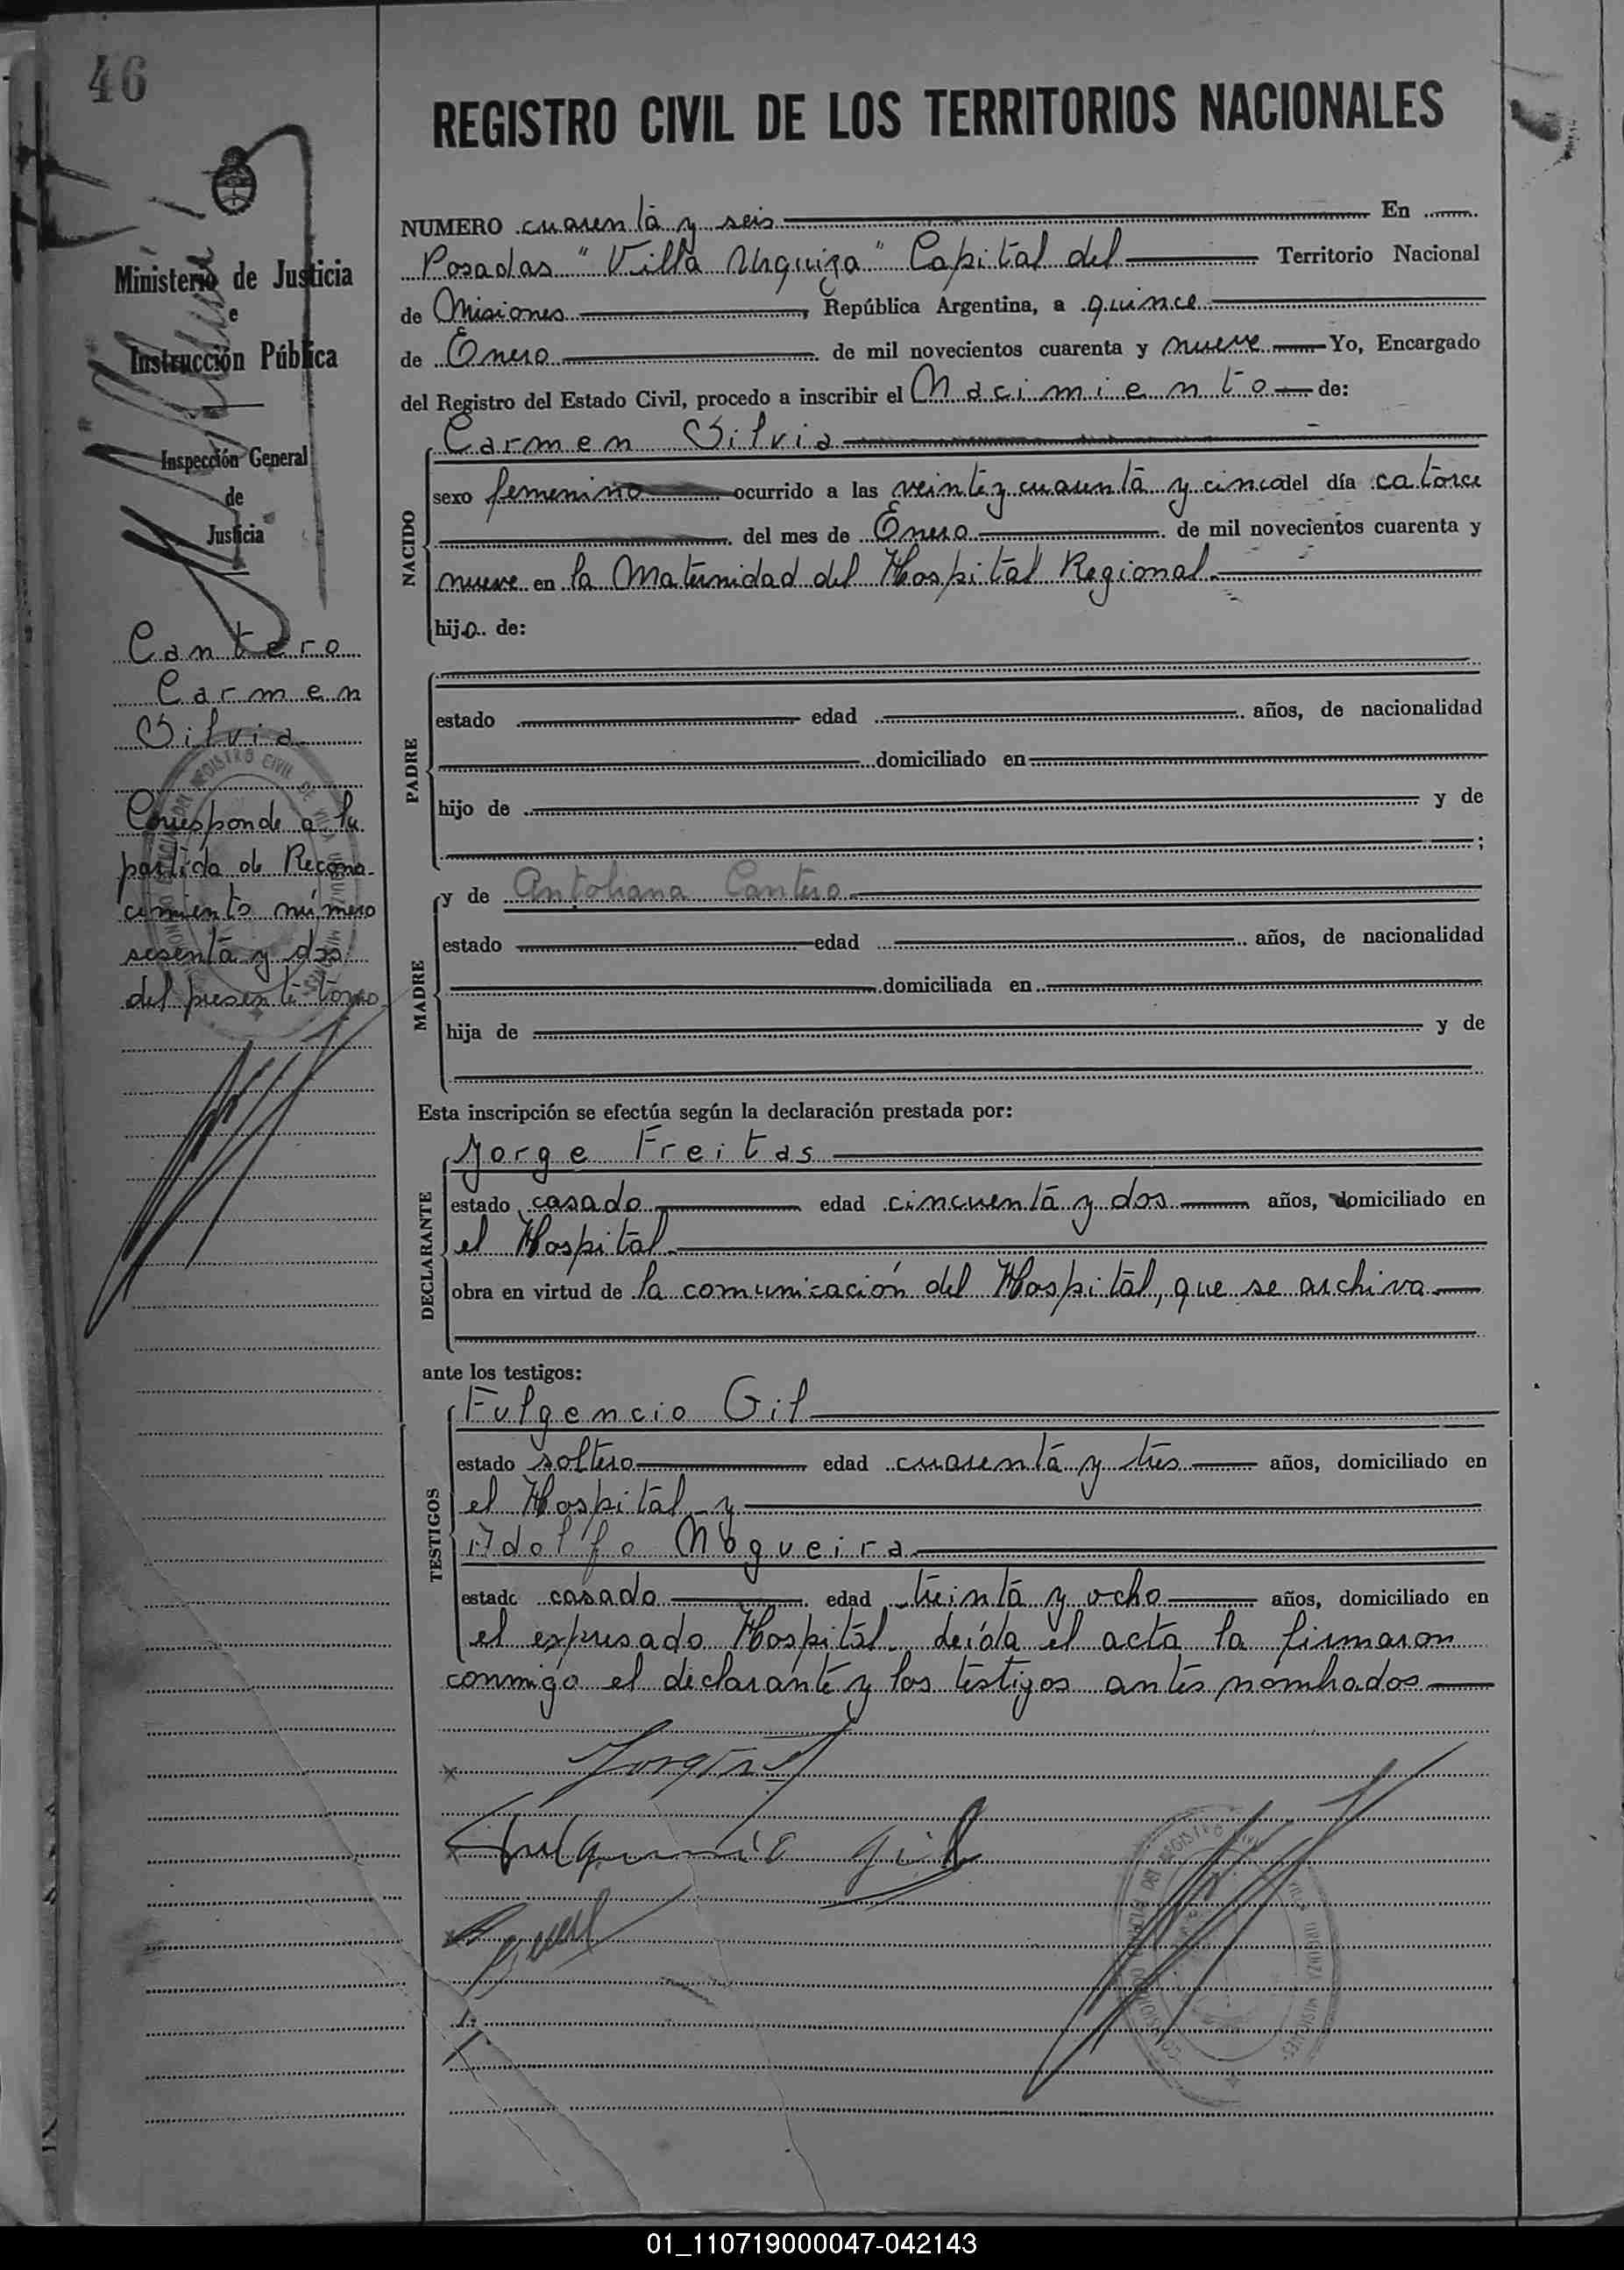 46
REGISTRO CIVIL DE LOS TERRITORIOS NACIONALES
NUMERO cuarenta y seis En
Posadas "Villa Urquiza" Capital del Territorio Nacional
de Misiones, República Argentina, a quince
de Enero de mil novecientos cuarenta y nueve Yo, Encargado
del Registro del Estado Civil, procedo a inscribir el Nacimiento de:
NACIDO
Carmen Silvia
sexo femenino ocurrido a las veinte y cuarenta y cinco del día catorce
del mes de Enero de mil novecientos cuarenta y
nueve en la Maternidad del Hospital Regional
hijo de:
PADRE
estado edad años, de nacionalidad
domiciliado en
hijo de y de
;
MADRE
y de Antoliana Cantero
estado edad años, de nacionalidad
domiciliada en
hija de y de
Esta inscripción se efectúa según la declaración prestada por:
DECLARANTE
Jorge Freitas
estado casado edad cincuenta y dos años, domiciliado en
el Hospital
obra en virtud de la comunicación del Hospital, que se archiva
ante los testigos:
TESTIGOS
Fulgencio Gil
estado soltero edad cuarenta y tres años, domiciliado en
el Hospital y
Adolfo Nogueira
estado casado edad treinta y ocho años, domiciliado en
el expresado Hospital. Leída el acta la firmaron
conmigo el declarante y los testigos antes nombrados
Fulgencio Gil
Ministerio de Justicia
e
Instrucción Pública
Inspección General
de
Justicia
Cantero
Carmen
Silvia
Corresponde a la
partida de Recono-
cimiento número
sesenta y dos
del presente tomo
01_110719000047-042143